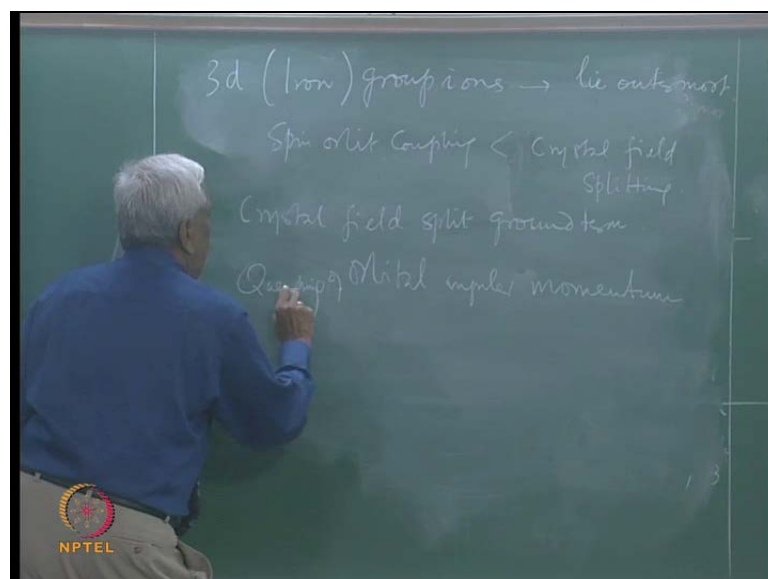 3d (Iron) group ions → lie outermost
Spin orbit Coupling < Crystal field
Splitting.
Crystal field split ground term
Quenching of Orbital angular momentum
, 3
NPTEL